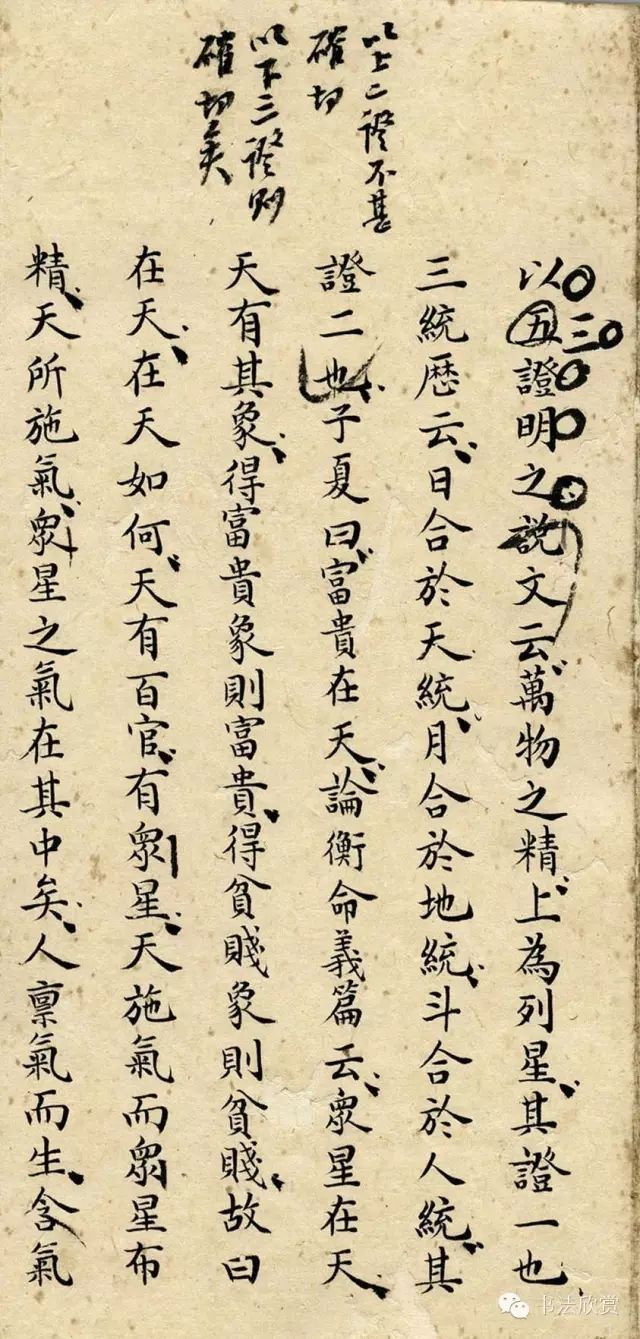 以上二證不甚
確切
以下三證則
確切矣
以五證明之說文云萬物之精上為列星其證一也
三
三統歷云日合於天統月合於地統斗合於人統其
證二也子夏曰富貴在天論衡命義篇云眾星在天
天有其象得富貴象則富貴得貧賤象則貧賤故曰
在天在天如何天有百官有眾星天施氣而眾星布
精天所施氣眾星之氣在其中矣人稟氣而生含氣
书法欣赏